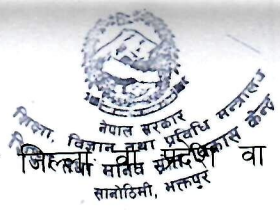 नेपाल सरकार
शिक्षा, विज्ञान तथा प्रविधि मन्त्रालय
जिल्ला वा प्रदेश वा
सानोठिमी, भक्तपुर